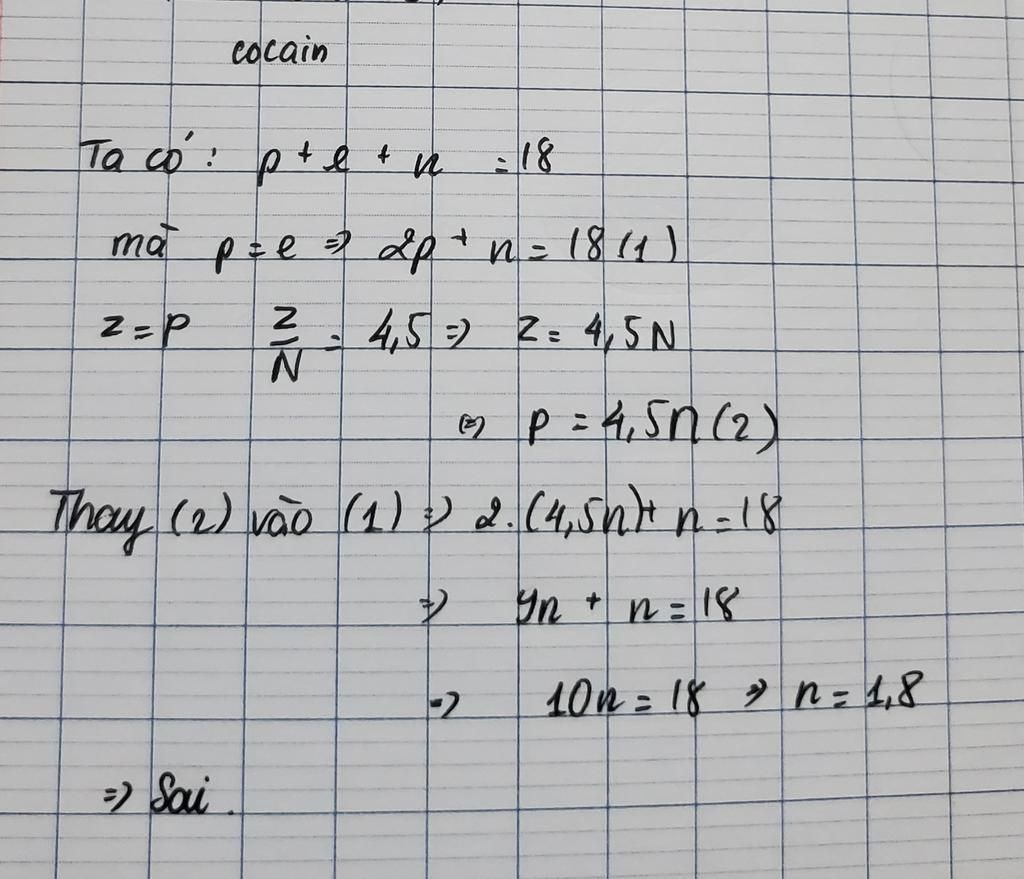 cocain
Ta có: p + e + n = 18
mà p = e => 2p + n = 18 (1)
Z = P Z/N = 4,5 => Z = 4,5 N
(=) p = 4,5n (2)
Thay (2) vào (1) => 2. (4,5n) + n = 18
=> 9n + n = 18
=> 10n = 18 => n = 1,8
=> Sai.